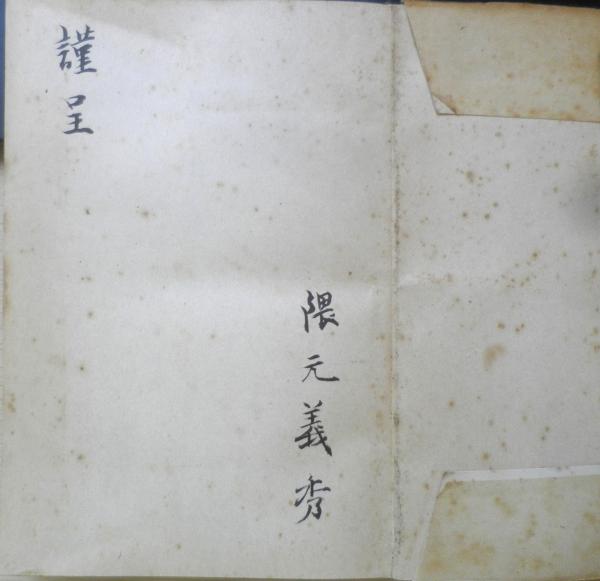 謹呈
隈元義秀